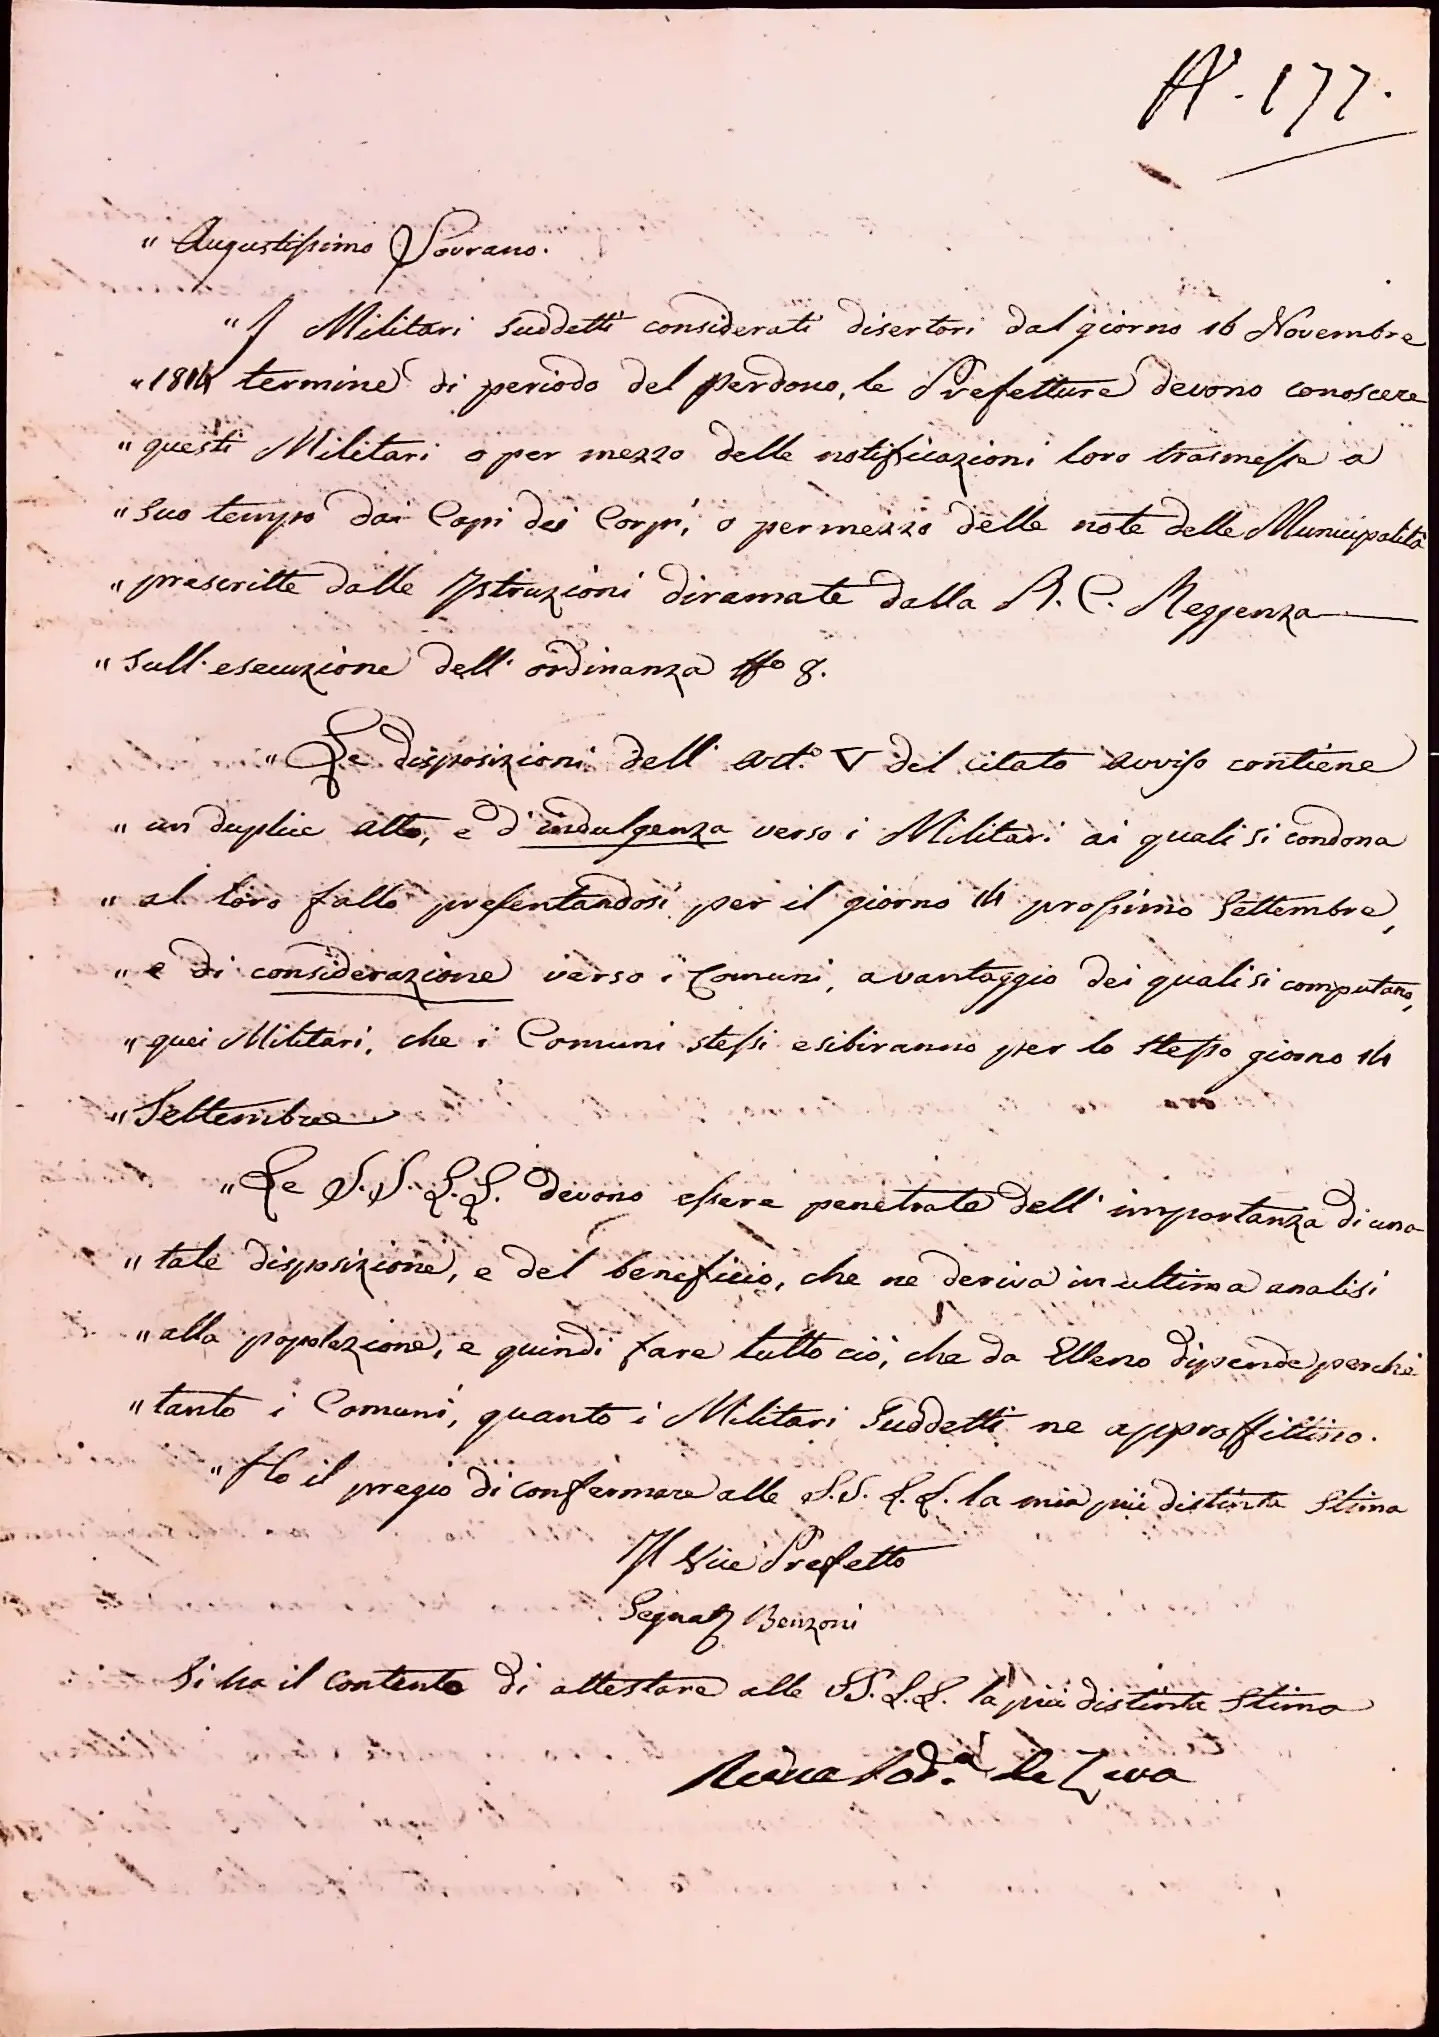 N. 177.
" Augustissimo Sovrano.
" I Militari suddetti considerati disertori dal giorno 16 Novembre
" 1814 termine di periodo del perdono, le Prefetture devono conoscere
" questi Militari o per mezzo delle notificazioni loro trasmesse a
" suo tempo dai Capi dei Corpi, o per mezzo delle note delle Municipalità
" prescritte dalle Istruzioni diramate dalla R. C. Reggenza
" sull' esecuzione dell' ordinanza No 8.
" Le disposizioni dell' art.o V del citato avviso contiene
" un duplice atto, e d' indulgenza verso i Militari ai quali si condona
" al loro fallo presentandosi per il giorno 14 prossimo Settembre,
" e di considerazione verso i Comuni, a vantaggio dei quali si computano,
" quei Militari, che i Comuni stessi esibiranno per lo stesso giorno 14
" Settembre
" Le S.S. L.L. devono essere penetrate dell' importanza di una
" tale disposizione, e del beneficio, che ne deriva in ultima analisi
" alla popolazione, e quindi fare tutto ciò, che da Elleno dipende perchè
" tanto i Comuni, quanto i Militari Suddetti ne approffittino.
" Ho il pregio di confermare alle S.S. L.L. la mia più distinta Stima
Il Vice Prefetto
Segnat Benzoni
Si ha il contento di attestare alle SS. L.L. la più distinta Stima